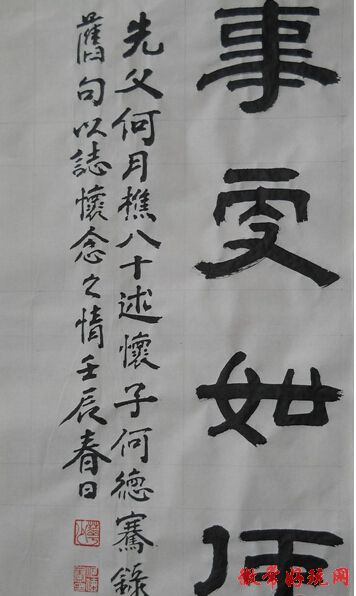 事更如何
先父何月樵八十述懷子何德騫錄
舊句以誌懷念之情壬辰春日
好玩网